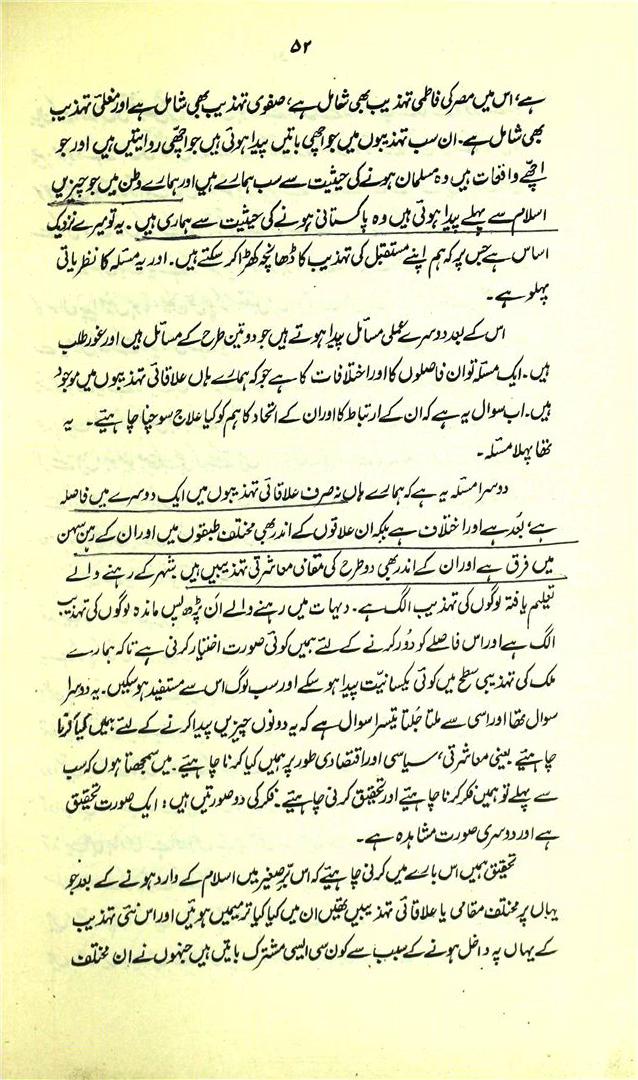 ۵۲
ہے، اس میں مصر کی فاطمی تہذیب بھی شامل ہے، صفوی تہذیب بھی شامل ہے اور مغلئی تہذیب
بھی شامل ہے۔ ان سب تہذیبوں میں جو اچھی باتیں پیدا ہوئی ہیں جو اچھی روایتیں ہیں اور جو
اچھے واقعات ہیں وہ مسلمان ہونے کی حیثیت سے سب ہمارے ہیں اور ہمارے وطن میں جو چیزیں
اسلام سے پہلے پیدا ہوئی ہیں وہ پاکستانی ہونے کی حیثیت سے ہماری ہیں۔ یہ تو میرے نزدیک
اساس ہے جس پر کہ ہم اپنے مستقبل کی تہذیب کا ڈھانچہ کھڑا کر سکتے ہیں۔ اور یہ مسئلہ کا نظریاتی
پہلو ہے۔
اس کے بعد دوسرے عملی مسائل پیدا ہوتے ہیں جو دو تین طرح کے مسائل ہیں اور غور طلب
ہیں۔ ایک مسئلہ تو ان فاصلوں کا اور اختلافات کا ہے جو کہ ہمارے ہاں علاقائی تہذیبوں میں موجود
ہیں۔ اب سوال یہ ہے کہ ان کے ارتباط کا اور ان کے اتحاد کا ہم کو کیا علاج سوچنا چاہئیے۔ یہ
تھا پہلا مسئلہ۔
دوسرا مسئلہ یہ ہے کہ ہمارے ہاں نہ صرف علاقائی تہذیبوں میں ایک دوسرے میں فاصلہ
ہے، بُعد ہے اور اختلاف ہے بلکہ ان علاقوں کے اندر بھی مختلف طبقوں میں اور ان کے رہن سہن
میں فرق ہے اور ان کے اندر بھی دو طرح کی مقامی معاشرتی تہذیبیں ہیں شہر کے رہنے والے
تعلیم یافتہ لوگوں کی تہذیب الگ ہے۔ دیہات میں رہنے والے اَن پڑھ پس ماندہ لوگوں کی تہذیب
الگ ہے اور اس فاصلے کو دُور کرنے کے لئے ہمیں کوئی صورت اختیار کرنی ہے تاکہ ہمارے
ملک کی تہذیبی سطح میں کوئی یکسانیت پیدا ہو سکے اور سب لوگ اس سے مستفید ہو سکیں۔ یہ دوسرا
سوال تھا اور اسی سے ملتا جُلتا تیسرا سوال ہے کہ یہ دونوں چیزیں پیدا کرنے کے لئے ہمیں کیا کرنا
چاہئیے یعنی معاشرتی، سیاسی اور اقتصادی طور پر ہمیں کیا کرنا چاہئیے۔ میں سمجھتا ہوں کہ سب
سے پہلے تو ہمیں فکر کرنا چاہئیے اور تحقیق کرنی چاہئیے۔ فکر کی دو صورتیں ہیں: ایک صورت تحقیق
ہے اور دوسری صورت مشاہدہ ہے۔
تحقیق ہمیں اس بارے میں کرنی چاہئیے کہ اس برِّصغیر میں اسلام کے وارد ہونے کے بعد جو
یہاں پر مختلف مقامی یا علاقائی تہذیبیں تھیں ان میں کیا کیا ترمیمیں ہوئیں اور اس نئی تہذیب
کے یہاں پہ داخل ہونے کے سبب سے کون سی ایسی مشترک باتیں ہیں جنہوں نے ان مختلف